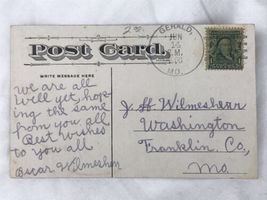 2.00
GERALD,
JUN
16
MO.
Post Card.
WRITE MESSAGE HERE
We are all
well yet, hop-
ing the same
from you all
Best wishes
to you all
Oscar Wilmesherr
J. H Wilmesherr
Washington
Franklin, Co.,
Mo.